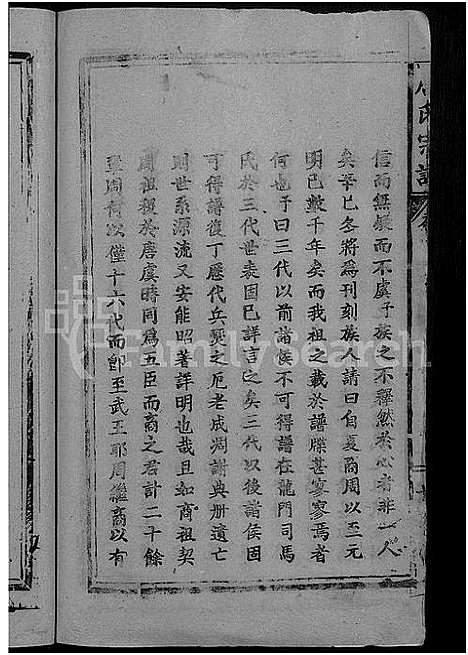 信而無疑而不虞予族之不釋然於心者非一人
矣辛巳冬將為刊刻族人請曰自夏商周以至元
明已數千年矣而我祖之載於譜牒甚寥寥焉者
何也予曰三代以前諸侯不可得譜在龍門司馬
氏於三代世表固已詳言之矣三代以後諸侯固
可得譜復丁歷代兵燹之厄老成凋謝典册遺亡
則世系源流又安能昭著詳明也哉且如商祖契
周祖稷於唐虞時同為五臣而商之君計二十餘
至周何以僅十六代而卽至武王耶周繼商以有
氏宗譜
FamilySearch